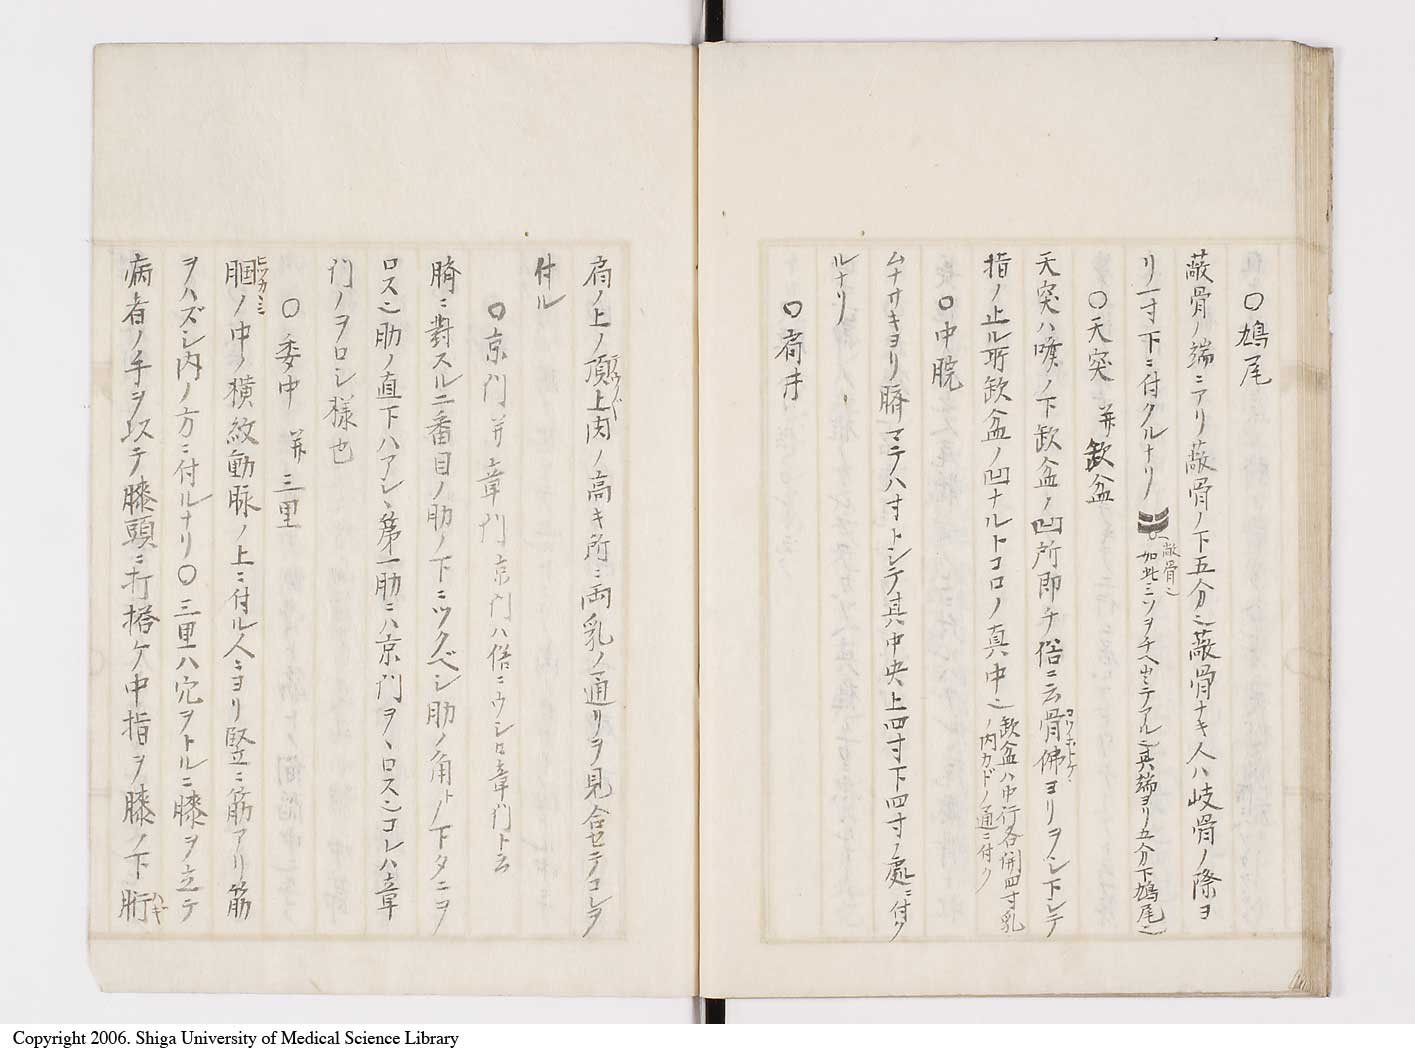 〇鳩尾
蔽骨ノ端ニアリ蔽骨ノ下五分ニ蔽骨ナキ人ハ岐骨ノ際ヨ
リ一寸下ニ付クルナリ 蔽骨ニ 如此ミソヲチヘ出テアルニ其端ヨリ五分下鳩尾ニ
〇天突 并 缺盆
天突ハ喉ノ下缺盆ノ凹所即チ俗ニ云骨佛ヨリヲシ下シテ
コツホトケ
指ノ止ル所缺盆ノ凹ナルトコロノ真中ニ 缺盆ハ中行各開四寸乳
ノ内カドノ通ニ付ク
〇中脘
ムナサキヨリ臍マテ八寸トシテ其中央上四寸下四寸ノ處ニ付ク
ルナリ
〇肩井
肩ノ上ノ頂上肉ノ高キ所ニ両乳ノ通リヲ見合セテコレヲ
付ル
〇京門 并 章門 京門ハ俗ニウシロ章門ト云
臍ニ對スル二番目ノ肋ノ下ニツクベシ肋ノ角トノ下タニヲ
ロスシ肋ノ直下ハアシヽ第一肋ニハ京門ヲヽロスシコレハ章
門ノヲロシ様也
〇委中 并 三里
膕ノ中ノ横紋動脉ノ上ニ付ル人ニヨリ竪ニ筋アリ筋
ヒツカヽミ
ヲハズシ内ノ方ニ付ルナリ〇三里ハ穴ヲトルニ膝ヲ立テ
病者ノ手ヲ以テ膝頭ニ打搭ケ中指ヲ膝ノ下䯒
ハギ
Copyright 2006. Shiga University of Medical Science Library